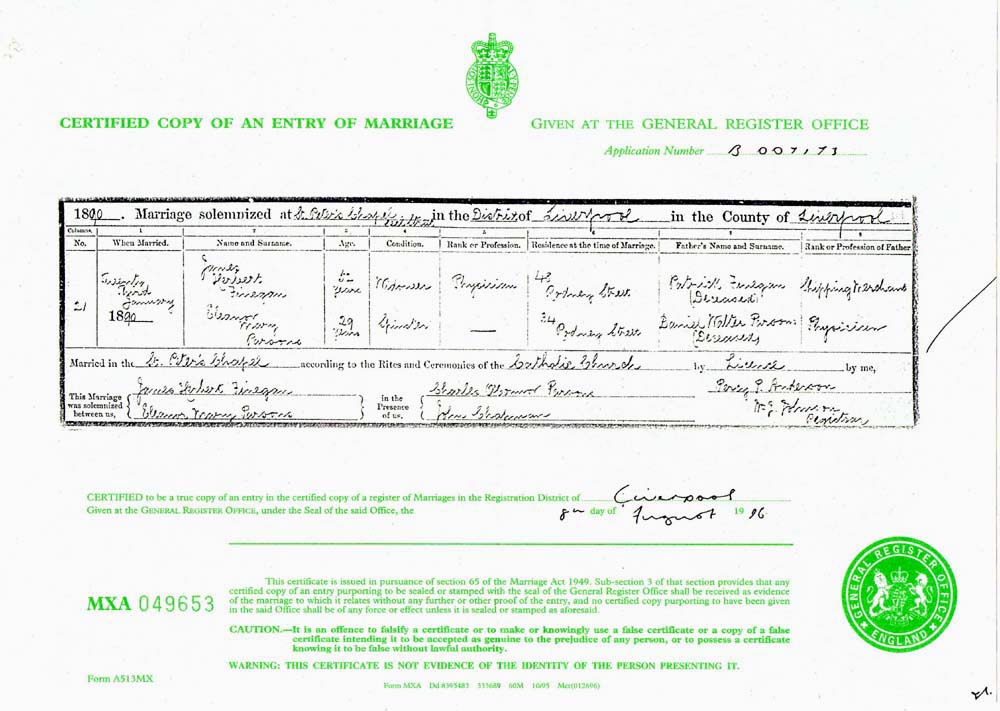 CERTIFIED COPY OF AN ENTRY OF MARRIAGE
GIVEN AT THE GENERAL REGISTER OFFICE
Application Number B 007173
1890. Marriage solemnized at St. Peter's Chapel in the District of Liverpool in the County of Liverpool
Columns. 1 2 3 4 5 6 7 8
No. When Married. Name and Surname. Age. Condition. Rank or Profession. Residence at the time of Marriage. Father's Name and Surname. Rank or Profession of Father
21 Twenty Third January 1890
James Herbert Finegan 52 years Widower Physician 48 Rodney Street Patrick Finegan (Deceased) Shipping Merchant
Eleanor Mary Parsons 29 years Spinster — 34 Rodney Street Daniel Walter Parsons (Deceased) Physician
Married in the St. Peter's Chapel according to the Rites and Ceremonies of the Catholic Church by Licence by me,
This Marriage was solemnized between us, James Herbert Finegan Eleanor Mary Parsons
in the Presence of us, Charles Parsons John Chapman
Percy P. Anderson
W. J. Johnson Registrar
CERTIFIED to be a true copy of an entry in the certified copy of a register of Marriages in the Registration District of Liverpool
Given at the GENERAL REGISTER OFFICE, under the Seal of the said Office, the 8th day of August 1996
This certificate is issued in pursuance of section 65 of the Marriage Act 1949. Sub-section 3 of that section provides that any
certified copy of an entry purporting to be sealed or stamped with the seal of the General Register Office shall be received as evidence
of the marriage to which it relates without any further or other proof of the entry, and no certified copy purporting to have been given
in the said Office shall be of any force or effect unless it is sealed or stamped as aforesaid.
MXA 049653
CAUTION.—It is an offence to falsify a certificate or to make or knowingly use a false certificate or a copy of a false
certificate intending it to be accepted as genuine to the prejudice of any person, or to possess a certificate
knowing it to be false without lawful authority.
WARNING: THIS CERTIFICATE IS NOT EVIDENCE OF THE IDENTITY OF THE PERSON PRESENTING IT.
GENERAL REGISTER OFFICE
ENGLAND
Form A513MX
Form MXA Dd 8395483 333689 60M 10/95 Mcr(012696)